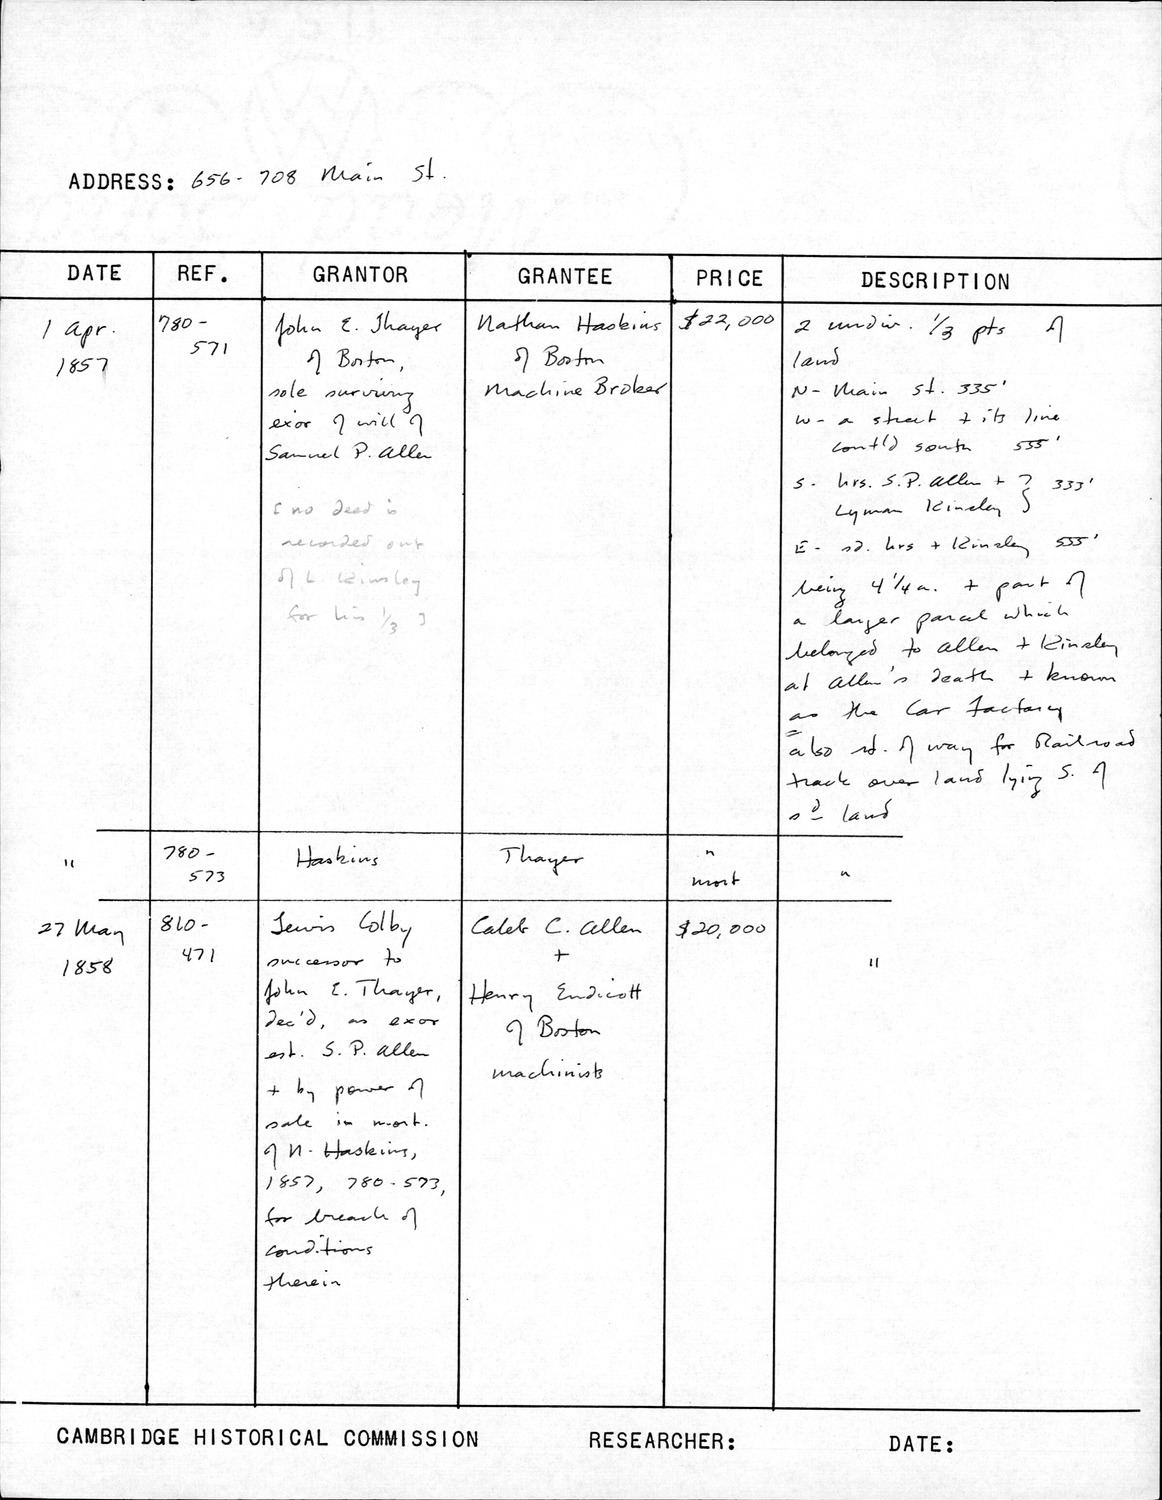 ADDRESS: 656-708 Main St.
DATE REF. GRANTOR GRANTEE PRICE DESCRIPTION
1 Apr.
1857
780-
571
John E. Thayer
of Boston,
sole surviving
exor of will of
Samuel P. Allen
[ no deed is
recorded out
of L. Kinsley
for his 1/3 ]
Nathan Haskins
of Boston
Machine Broker
$22,000
2 undiv. 1/3 pts of
land
N- Main St. 335'
W- a street + its line
cont'd south 555'
S- hrs. S.P. Allen + }
Lyman Kinsley } 333'
E- sd. hrs + Kinsley 555'
being 4 1/4 a. + part of
a larger parcel which
belonged to Allen + Kinsley
at Allen's death + known
as the Car Factory
also rt. of way for Railroad
track over land lying S. of
sd land
"
780-
573
Haskins
Thayer
"
mort
"
27 May
1858
810-
471
Lewis Colby
successor to
John E. Thayer,
dec'd, as exor
est. S. P. Allen
+ by power of
sale in mort.
of N. Haskins,
1857, 780-573,
for breach of
conditions
therein
Caleb C. Allen
+
Henry Endicott
of Boston
machinists
$20,000
"
CAMBRIDGE HISTORICAL COMMISSION RESEARCHER: DATE: